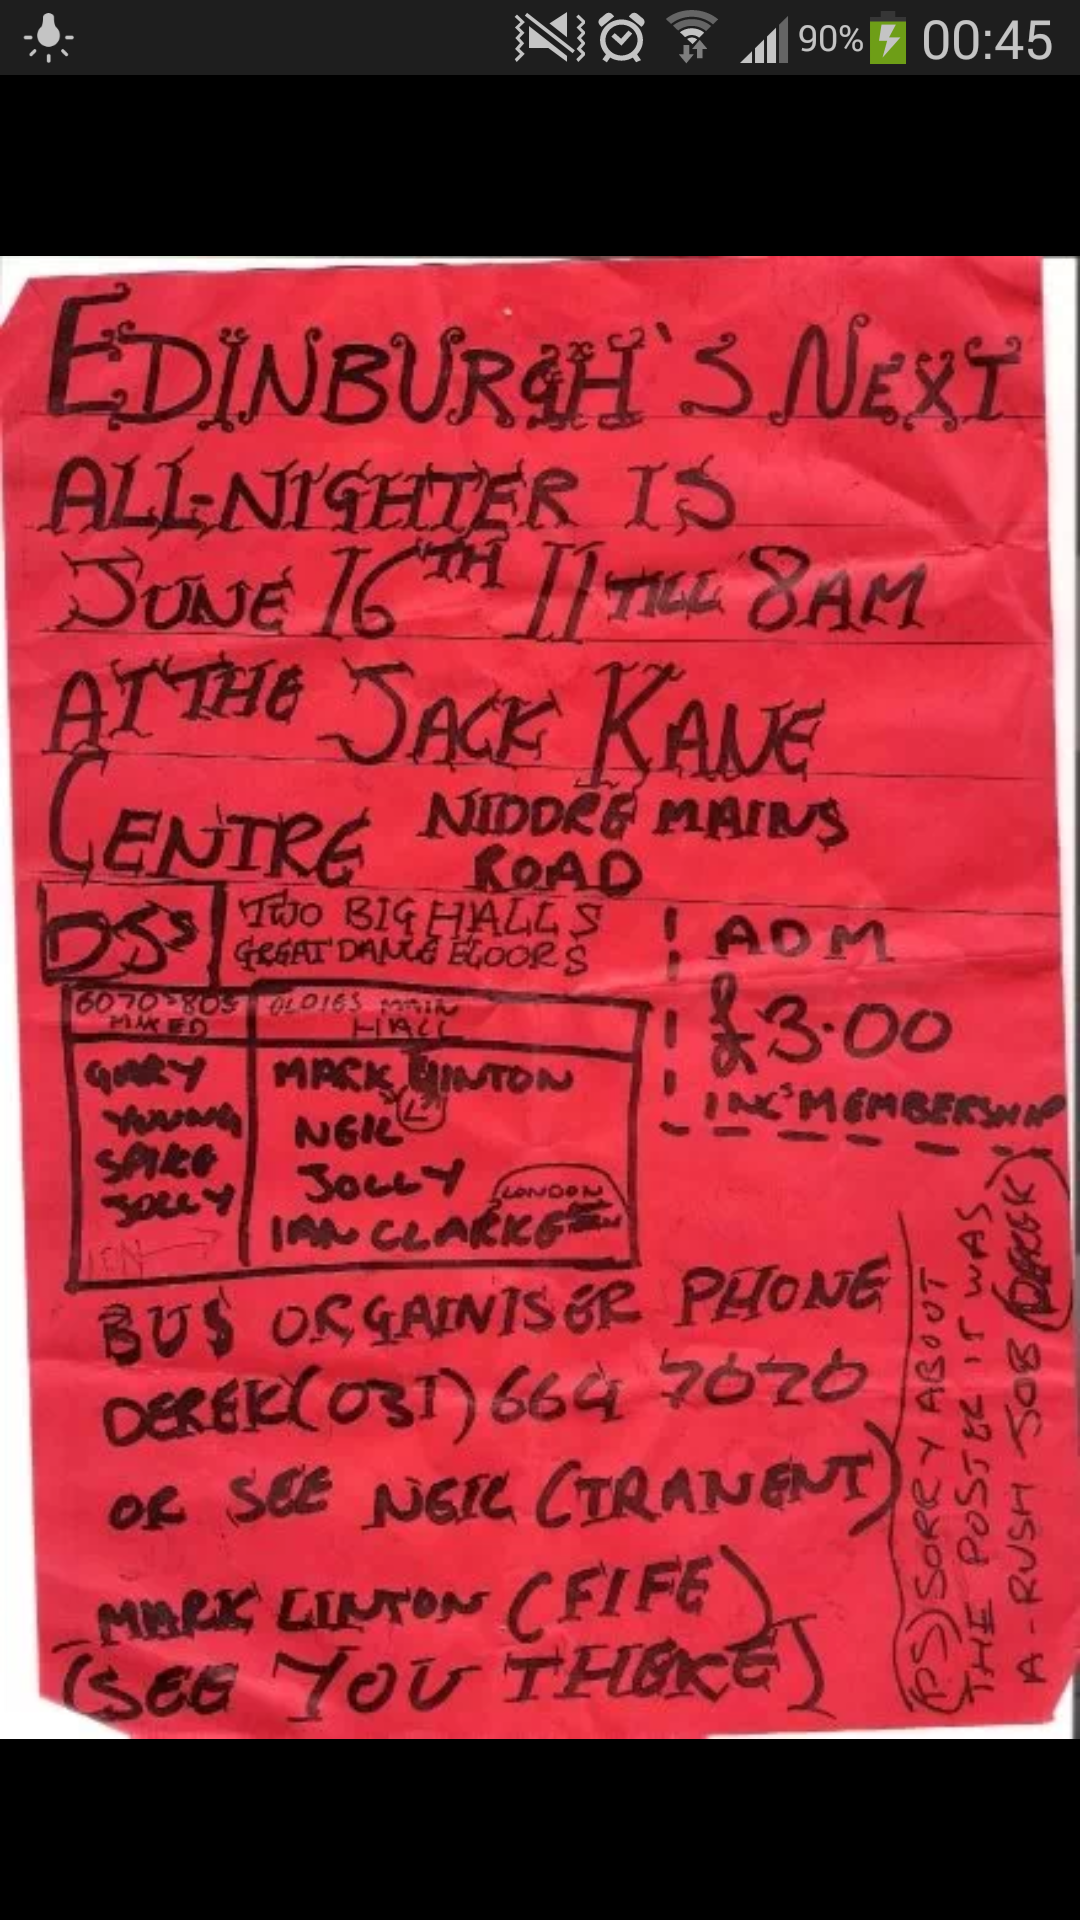 90% 00:45
EDINBURGH'S NEXT
ALL-NIGHTER IS
JUNE 16TH 11 TILL 8AM
AT THE JACK KANE
CENTRE NIDDRE MAINS
ROAD
DJS
TWO BIG HALLS
GREAT DANCE FLOORS
ADM
£3.00
INC MEMBERSHIP
60 70 80S
MIXED
GARY
YOUNG
SPIKE
JOLLY
OLDIES MAIN
HALL
MARK LINTON
NEIL
JOLLY
IAN CLARKE LONDON
BUS ORGAINISER PHONE
DEREK (031) 664 7070
OR SEE NEIL (TRANENT)
MARK LINTON (FIFE)
(SEE YOU THERE)
(PS) SORRY ABOUT
THE POSTER IT WAS
A-RUSH JOB DEREK